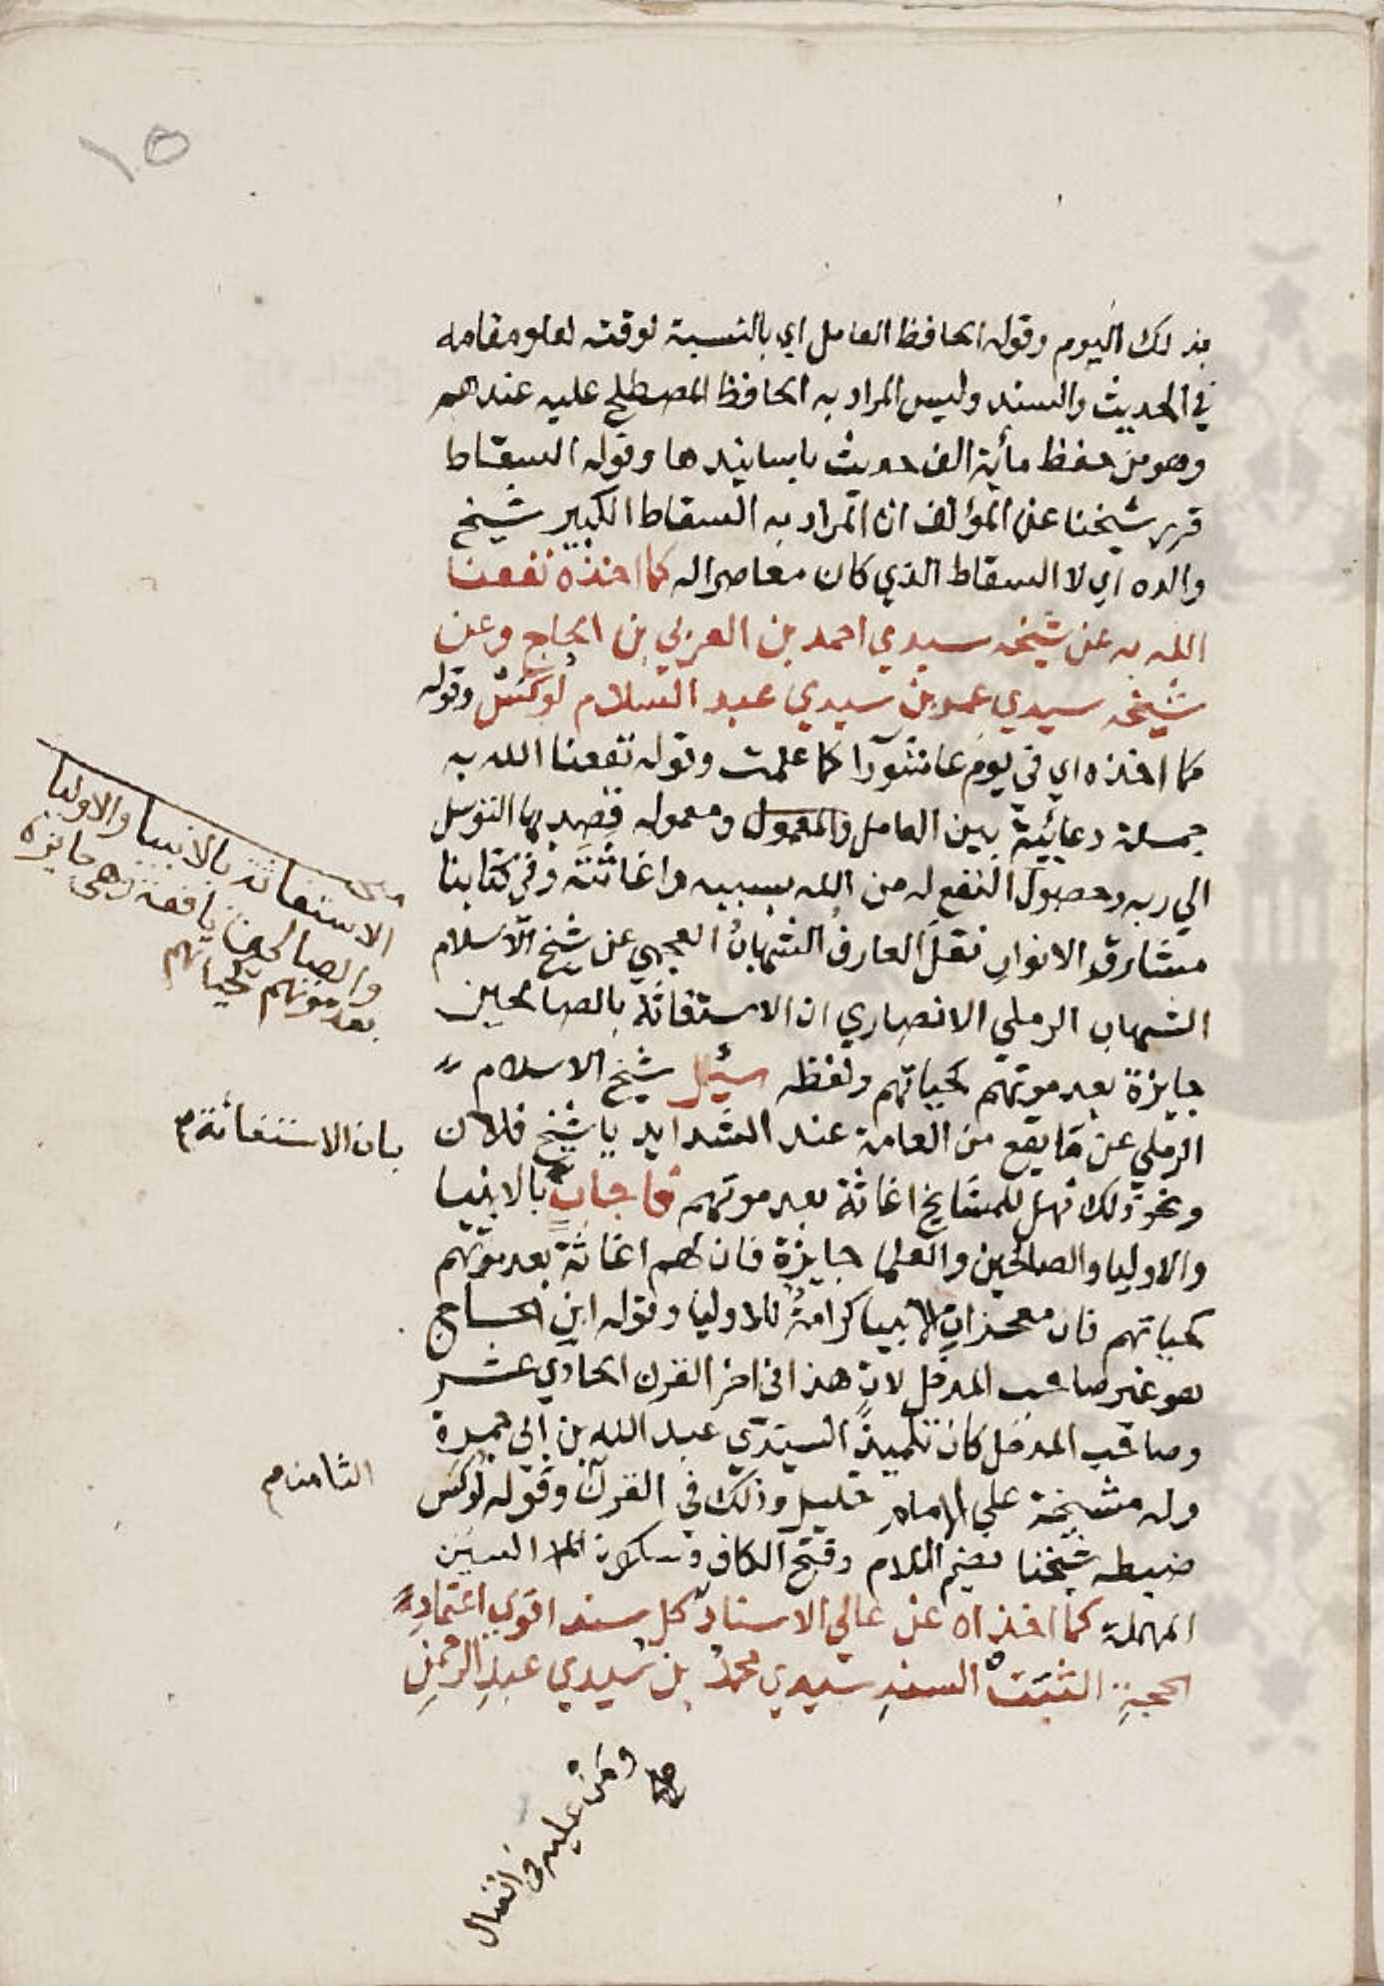 ١٥
بذلك اليوم وقوله الحافظ العامل اي بالنسبة لوقته لعلو مقامه
في الحديث والسند وليس المراد به الحافظ المصطلح عليه عندهم
وهو من حفظ مأية الف حديث باسانيدها وقوله السقاط
قرر شيخنا عن المؤلف ان المراد به السقاط الكبير شيخ
والده اي لا السقاط الذي كان معاصرا له كما اخذه نفعنا
الله به عن شيخه سيدي احمد بن العربي بن الحاج وعن
شيخه سيدي عمر بن سيدي عبد السلام لوكس وقوله
كما اخذه اي في يوم عاشورآ كما علمت وقوله نفعنا الله به
جملة دعائية بين العامل والمعمول ومعموله قصد بها التوسل
الي ربه وحصول النفع له من الله بسببه واغاثته وفي كتابنا
مشارق الانوار نقل العارف الشهاب العجمي عن شيخ الاسلام
الشهاب الرملي الانصاري ان الاستغاثة بالصالحين
جايزة بعد موتهم كحياتهم ولفظه سئل شيخ الاسلام
الرملي عن ما يقع من العامة عند الشدايد يا شيخ فلان
ونحو ذلك فهل للمشايخ اغاثة بعد موتهم فاجاب بالانبيا
والاوليا والصالحين والعلما جايزة فان لهم اغاثة بعد موتهم
كحياتهم فان معجزات الانبيا كرامة للاوليا وقوله ابن الحاج
هو غير صاحب المدخل لان هذا في اخر القرن الحادي عشر
وصاحب المدخل كان تلميذ السيدي عبد الله بن ابي جمرة
وله مشيخة علي الامام خليل وذلك في القرن وقوله لوكس
ضبطه شيخنا بضم اللام وفتح الكاف وسكون السين
المهملة كما اخذاه عن عالي الاسناد كل سند اقوي اعتماد
الحجة الثبت السند سيدي محمد بن سيدي عبد الرحمن
مطلب
الاستغاثة بالانبيا والاوليا
والصالحين نافعة وهي جايزة
بعد موتهم كحياتهم
بان الاستغاثة م
الثامن م
ومن عليه في